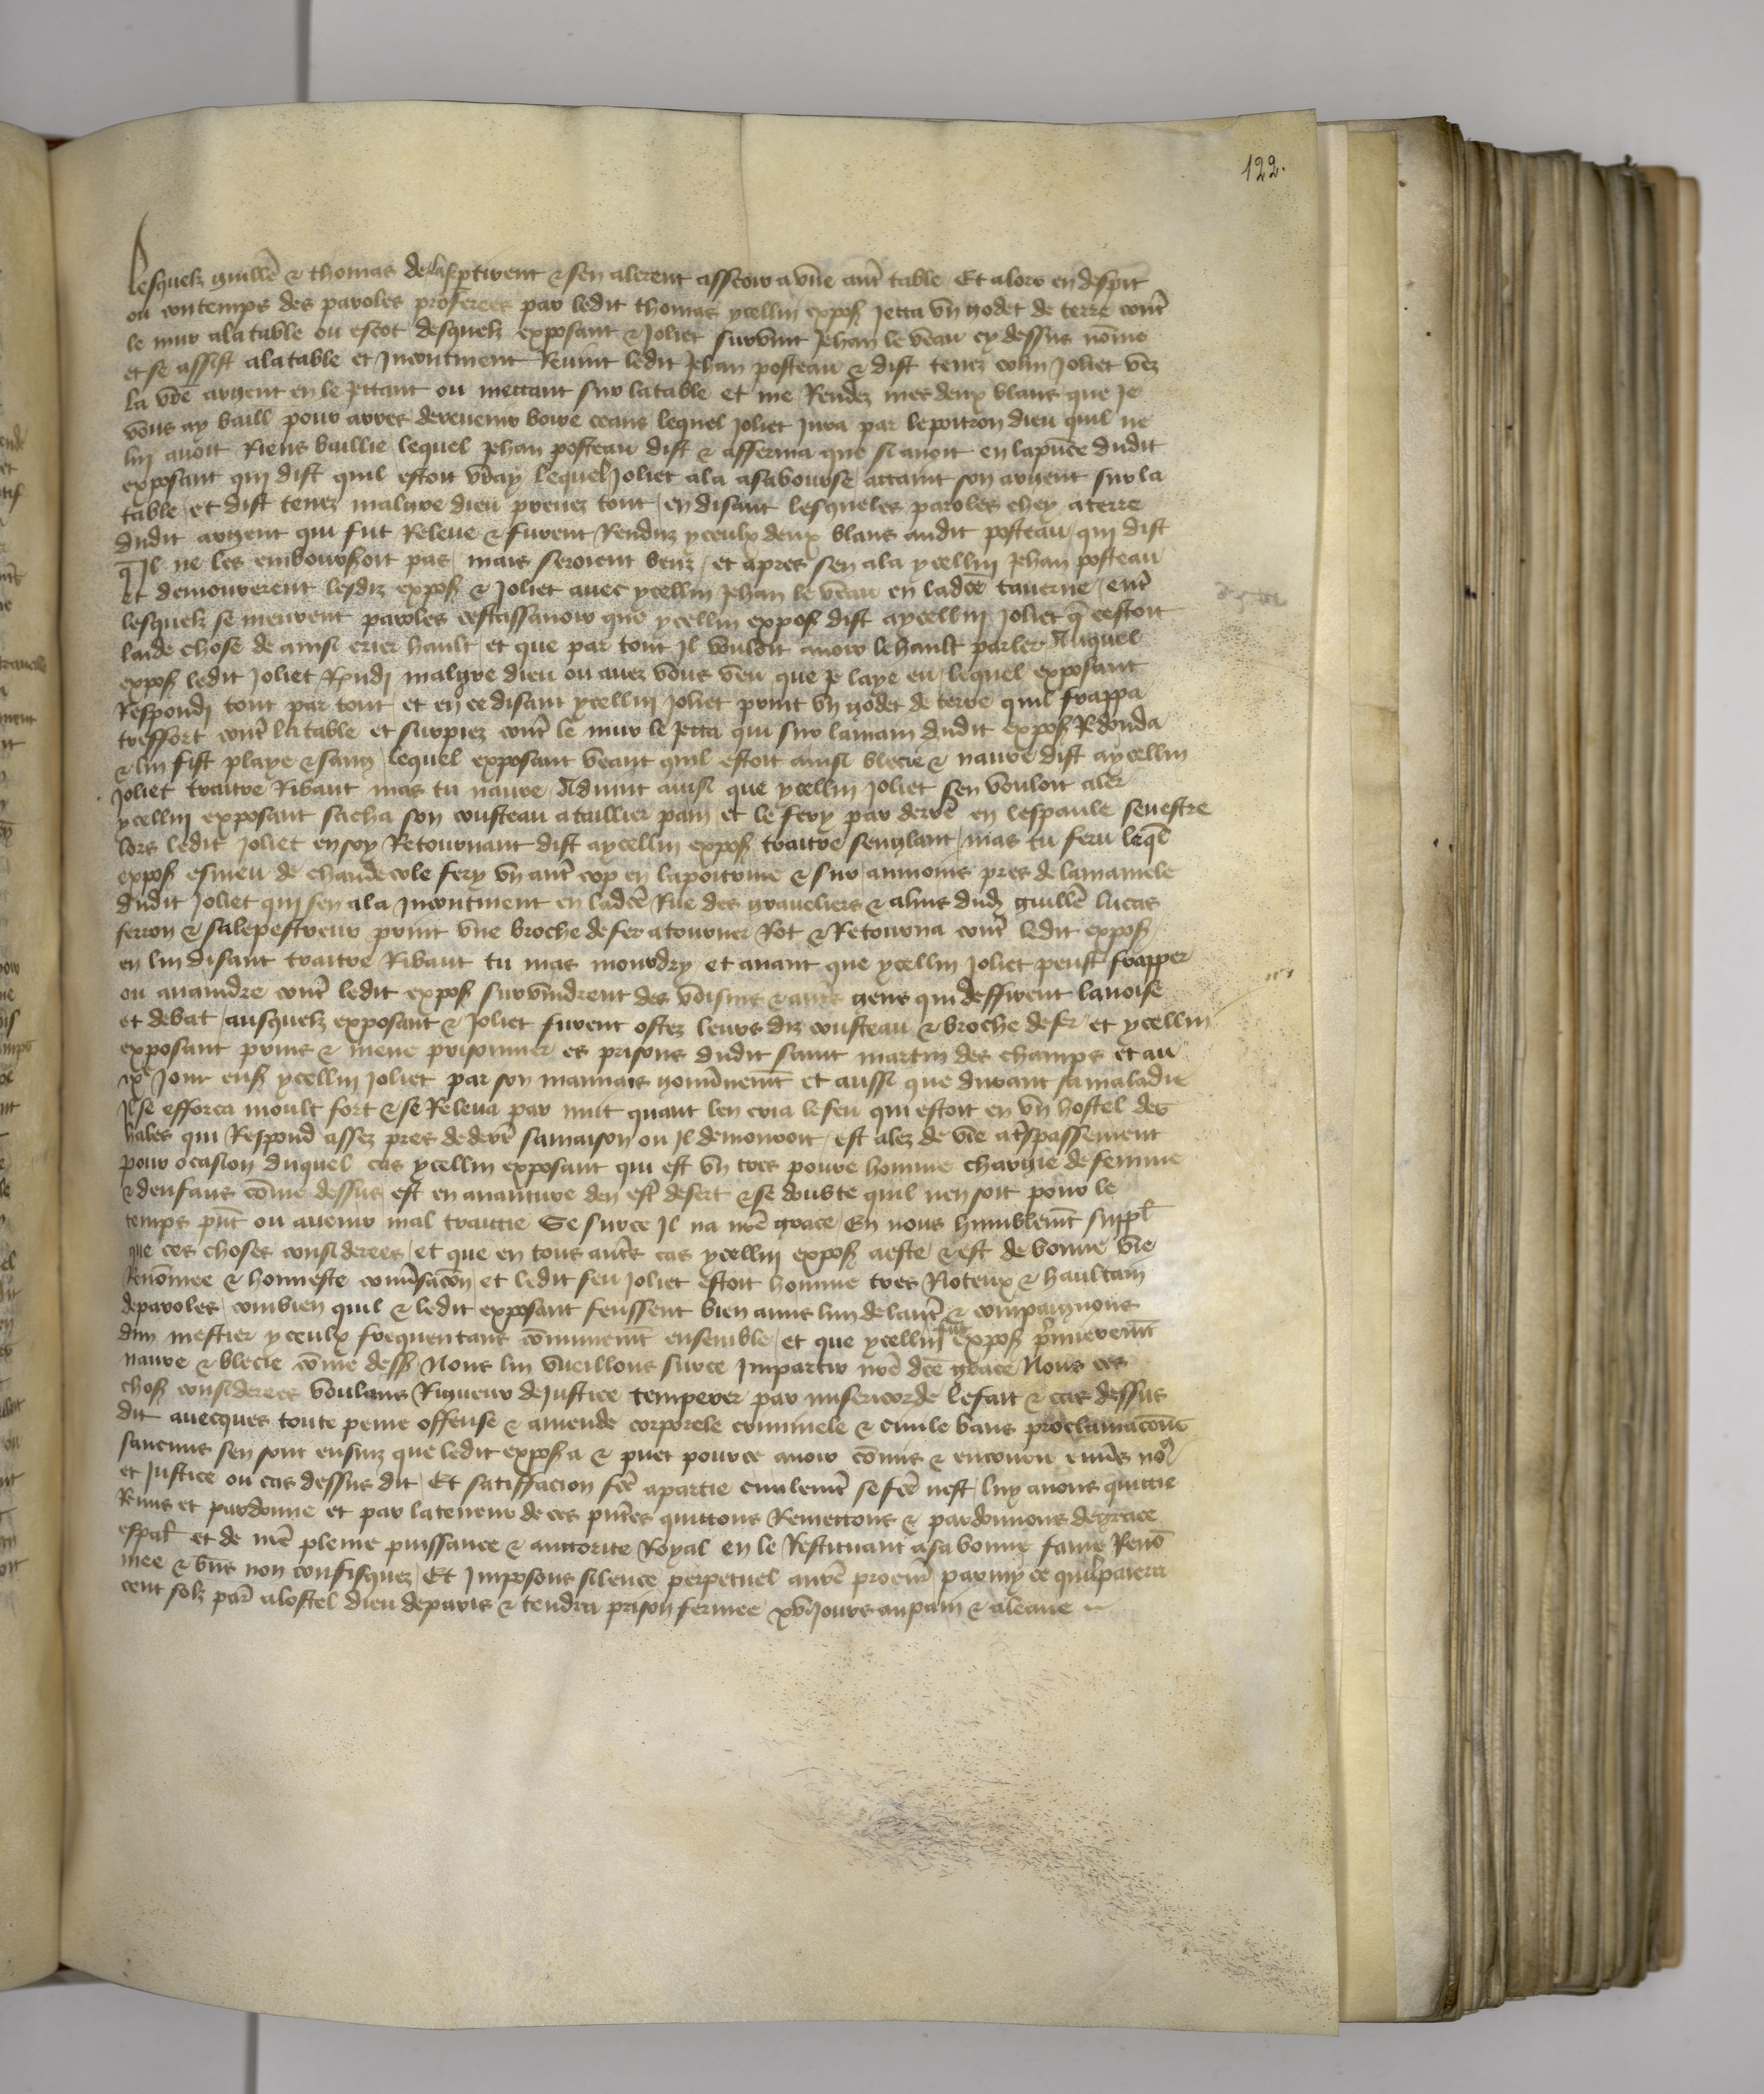 122.
Lesquelz guillē & thomas de la se ptirent & sen alerent asseoir a vne aut̄ table Et alors en despit
ou contemps des paroles proferees par ledit thomas ycellui expoſ Jetta vn godet de terre cont̄
le mur a la table ou escot desquelz exposant & Joliet survint Jehan le veau cy dessus nōme
et se assist a la table et Incontinent Revint ledit Jehan posteau & dist tenez colin Joliet vez
la vr̄e argent en le Jettant ou mettant sur la table et me Rendez mes deux blans que Je
vous ay baill pour arres de revenir boire ceans lequel Joliet Jura par le poitron dieu quil ne
lui avoit Riens baillie lequel Jehan posteau dist & afferma que si avoit en la pn̄ce dudit
exposant qui dist quil estoit vray lequel Joliet ala a sa bourse attaint son argent sur la
table et dist tenez malgre dieu prenez tout en disant lesqueles paroles chey a terre
dudit argent qui fut Releve & furent Renduz yceulx deux blans audit posteau qui dist
q̄ Il ne les embourseroit pas mais seroient beuz et apres sen ala ycellui Jehan posteau
et demourerent lesdiz expoſ & Joliet avec ycellui Jehan le veau en ladc̄e taverne ent̄
lesquelz se meurent paroles cestassavoir que ycellui expoſ dist a ycellui Joliet q̄ cestoit
laide chose de ainsi crier hault et que par tout Il vouloit avoir le hault parler Auquel
expoſ ledit Joliet Rn̄dj malgre dieu ou avez vous veu que Je laye eu lequel exposant
Respondj tout par tout et en ce disant ycellui Joliet print vn godet de terre quil frappa
tresfort cont̄ la table et surpiez cont̄ le mur le Jetta qui sur la main dudit expoſ Redonda
& lui fist playe & sang lequel exposant veant quil estoit ainsi blecie & navre dist a ycellui
Joliet traitre Ribaut mas tu navre Advint ainsi que ycellui Joliet sen vouloit aler
ycellui exposant sacha son cousteau a taillier pain et le fery par derrē en lespaule senestre
lors ledit Joliet en soy Retournant dist a ycellui expoſ traitre senglant mas tu feru leq̄l
expoſ esmeu de chaudecole fery vn aut̄ cop en la poitrine & sur au moins pres de la mamele
dudit Joliet qui sen ala Incontinent en ladc̄e Rue des graveliers & a luis dudj guillē lucas
ferron & salepestreur print vne broche de fer a tourner Rot & Retourna cont̄ ledit expoſ
en lui disant traitre Ribaut tu mas mourdry et avant que ycellui Joliet peust frapper
ou avaindre cont̄ ledit expoſ survindrent des voisins & autrēs gens qui deffirent la noise
et debat ausquelz exposant & Joliet furent ostez leurs diz cousteau & broche de fer et ycellui
exposant prins & mene prisonnier es prisons dudit saint martin des champs et au
ixe Jour enſ ycellui Joliet par son mauvais gouv̄nemt̄ et aussi que durant sa maladie
Il se efforca moult fort & se Releva par nuit quant len cria le feu qui estoit en vn hostel des
hales qui Respond assez pres de derrē sa maison ou Il demouroit est alez de vie a tr̄spassement
pour ocasion duquel cas ycellui exposant qui est vn tres povre homme chargie de femme
& denfans cōme dessus est en avanture den est̄ desert & se doubte quil nen soit pour le
temps pn̄t ou avenir mal traictie Se sur ce Il na nrē grace En nous humblemt̄ suppl̄
que ces choses considerees et que en tous autrēs cas ycellui expoſ a este & est de bonne vie
Renōmee & honneste conv̄sacōn et ledit feu Joliet estoit homme tres Noteux & haultain
de paroles combien quil & ledit exposant feussent bien amis lun de laut̄ & compaignons
dun mestier yceulx frequentans cōmunemt̄ ensemble et que ycellui fut expoſ p̄mieremt̄
navre & blecie cōme desſ Nous lui vueillons sur ce Impartir nrē dc̄e grace Nous ces
choſ considerees voulans Rigueur de Justice temperer par misericorde le fait & cas dessus
dit avecques toute peine offense & amende corporele criminele & civile bans proclamacōns
saucuns sen sont ensuiz que ledit expoſ a & puet pour ce avoir cōmis & encouru envs̄ no9
et Justice ou cas dessus dit Et satiffacion fc̄e a partie civilemt̄ se fc̄e nest luy avons quittie
Remis et pardonne et par la teneur de ces pn̄tes quittons Remettons & pardonnons de grace
esp̄al et de nrē pleine puissance & auctorite Royal en le Restituant a sa bonne fame Renō
mee & biens non confisquez Et Imposons silence perpetuel a nrē procur̄ parmy ce quil paiera
cent solz par̄ a lostel dieu de paris & tendra prison fermee xv Jours au pain & a leaue